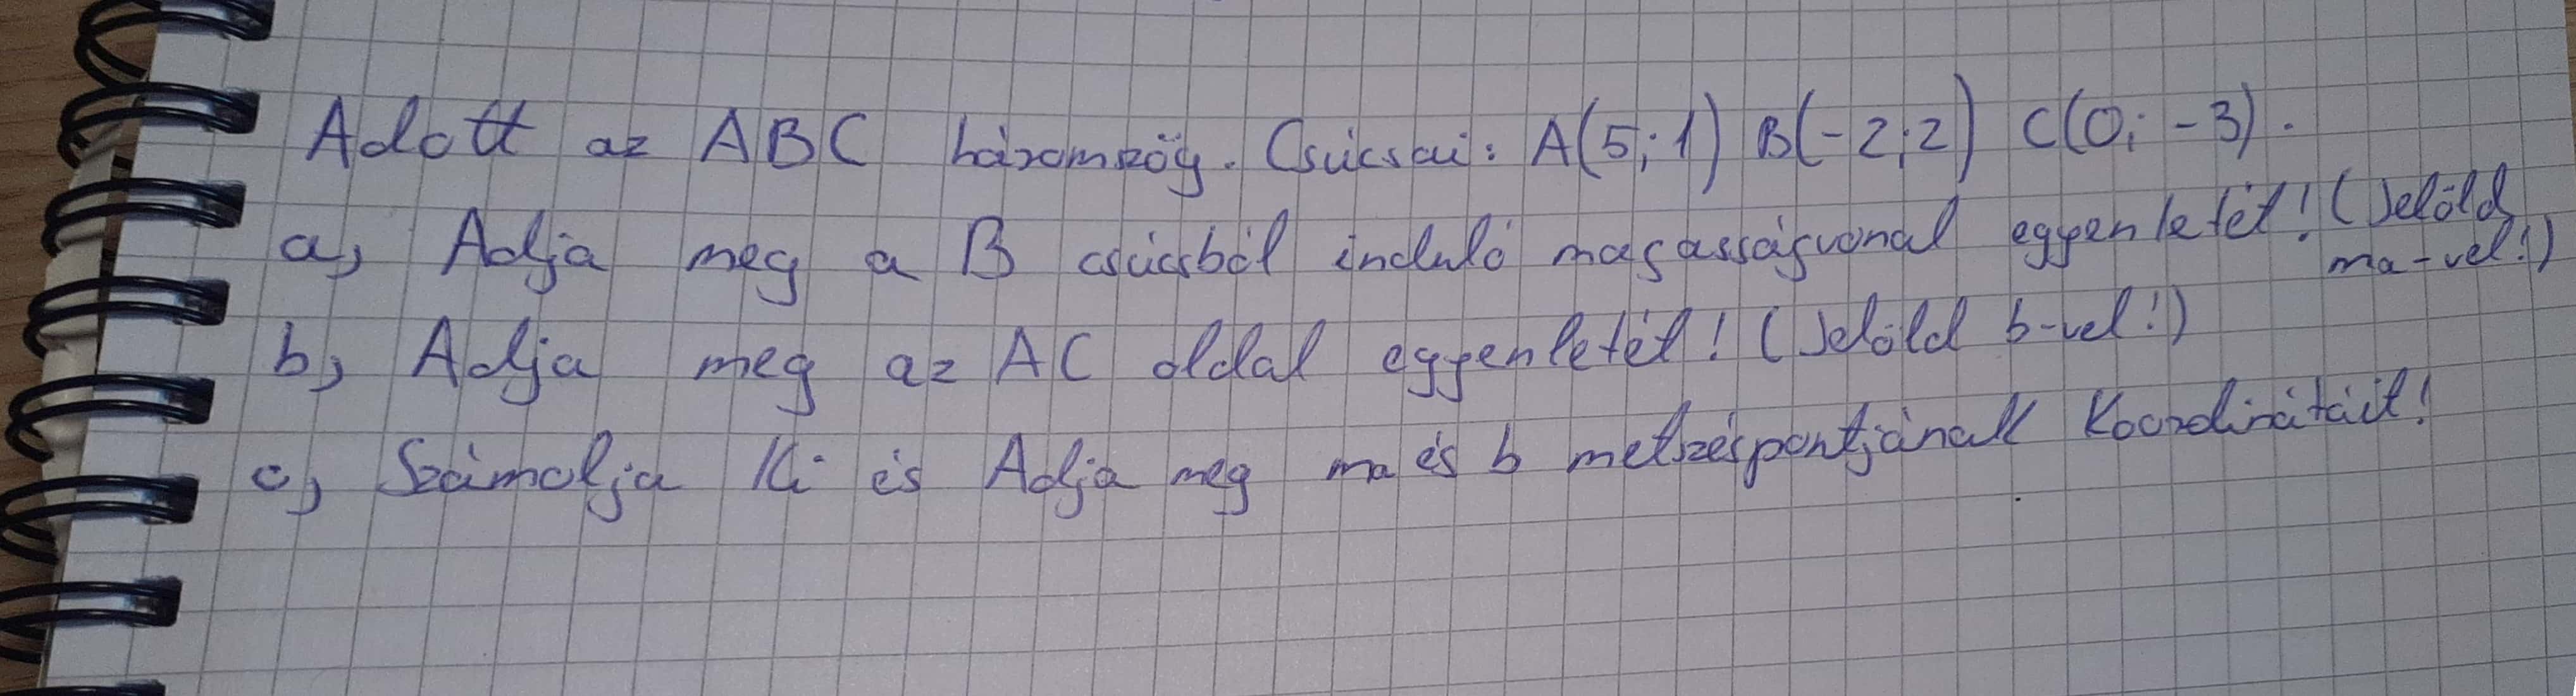 Adott az ABC háromszög. Csúcsai: A(5;1) B(-2;2) C(0;-3).
a, Adja meg a B csúcsból induló magasságvonal egyenletét! (Jelöld
ma-val!)
b, Adja meg az AC oldal egyenletét! (Jelöld b-vel!)
c, Számolja Ki és Adja meg ma és b metszéspontjának Koordinátáit!